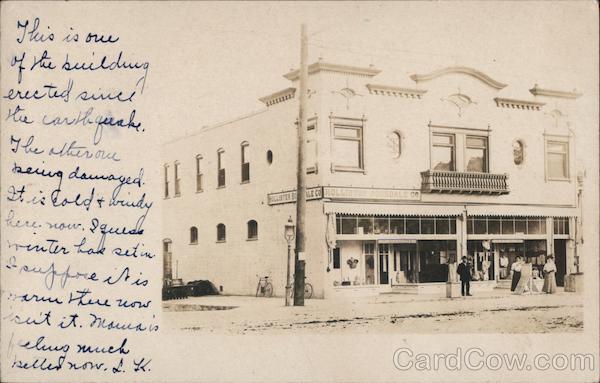 This is one
of the building
erected since
the earthquake.
The other one
being damaged.
It is cold & windy
here now. I guess
winter has set in.
I suppose it is
warm there now
isn't it. Mama is
feeling much
better now. L. K.
HOLLISTER
CO
HOLLISTER
CO
CardCow.com